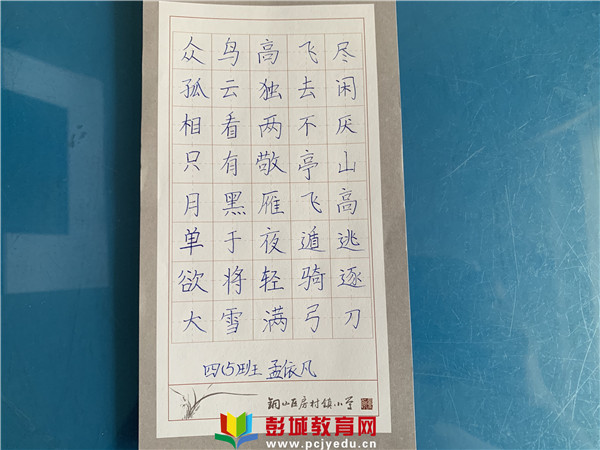 众鸟高飞尽
孤云独去闲
相看两不厌
只有敬亭山
月黑雁飞高
单于夜遁逃
欲将轻骑逐
大雪满弓刀
四(5)班 孟依凡
铜山区房村镇小学
彭城教育网
www.pcjyedu.cn